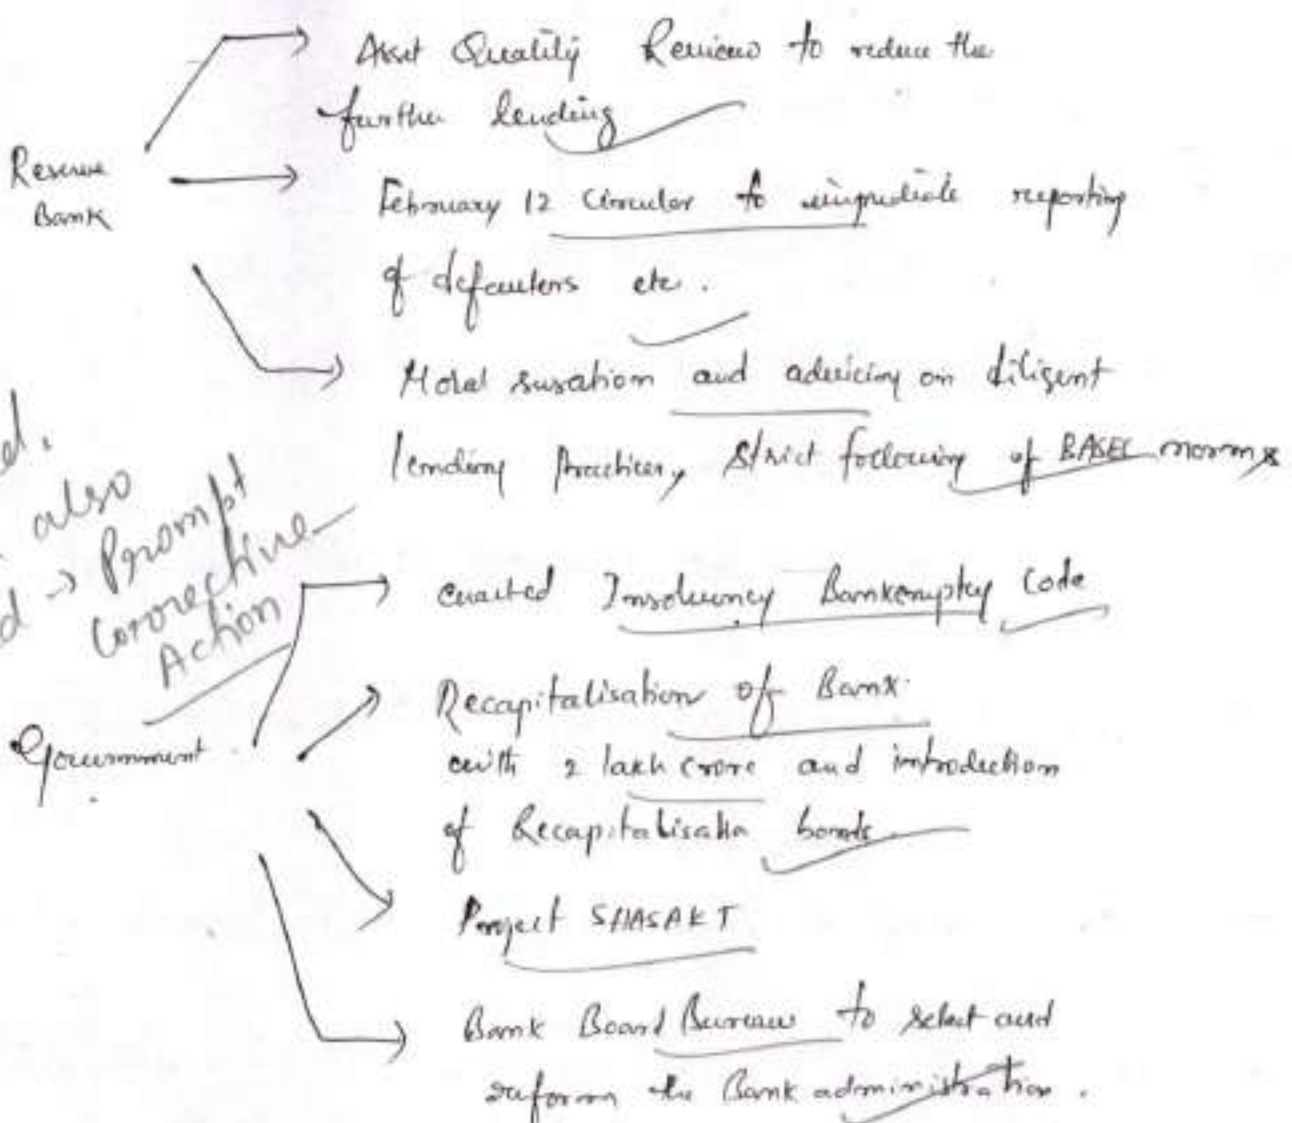 Asset Quality Review to reduce the
further lending
Reserve
Bank
February 12 Circular to immediate reporting
of defaulters etc.
Moral susation and advicing on diligent
lending practices, strict following of BASEL norms
also
Prompt
Corrective
Action
Government
enacted Insolvency Bankcruptcy Code
Recapitalisation of Bank
with 2 lakh crore and introduction
of Recapitalisation bonds
Project SHASAKT
Bank Board Bureau to select and
reform the Bank administration.